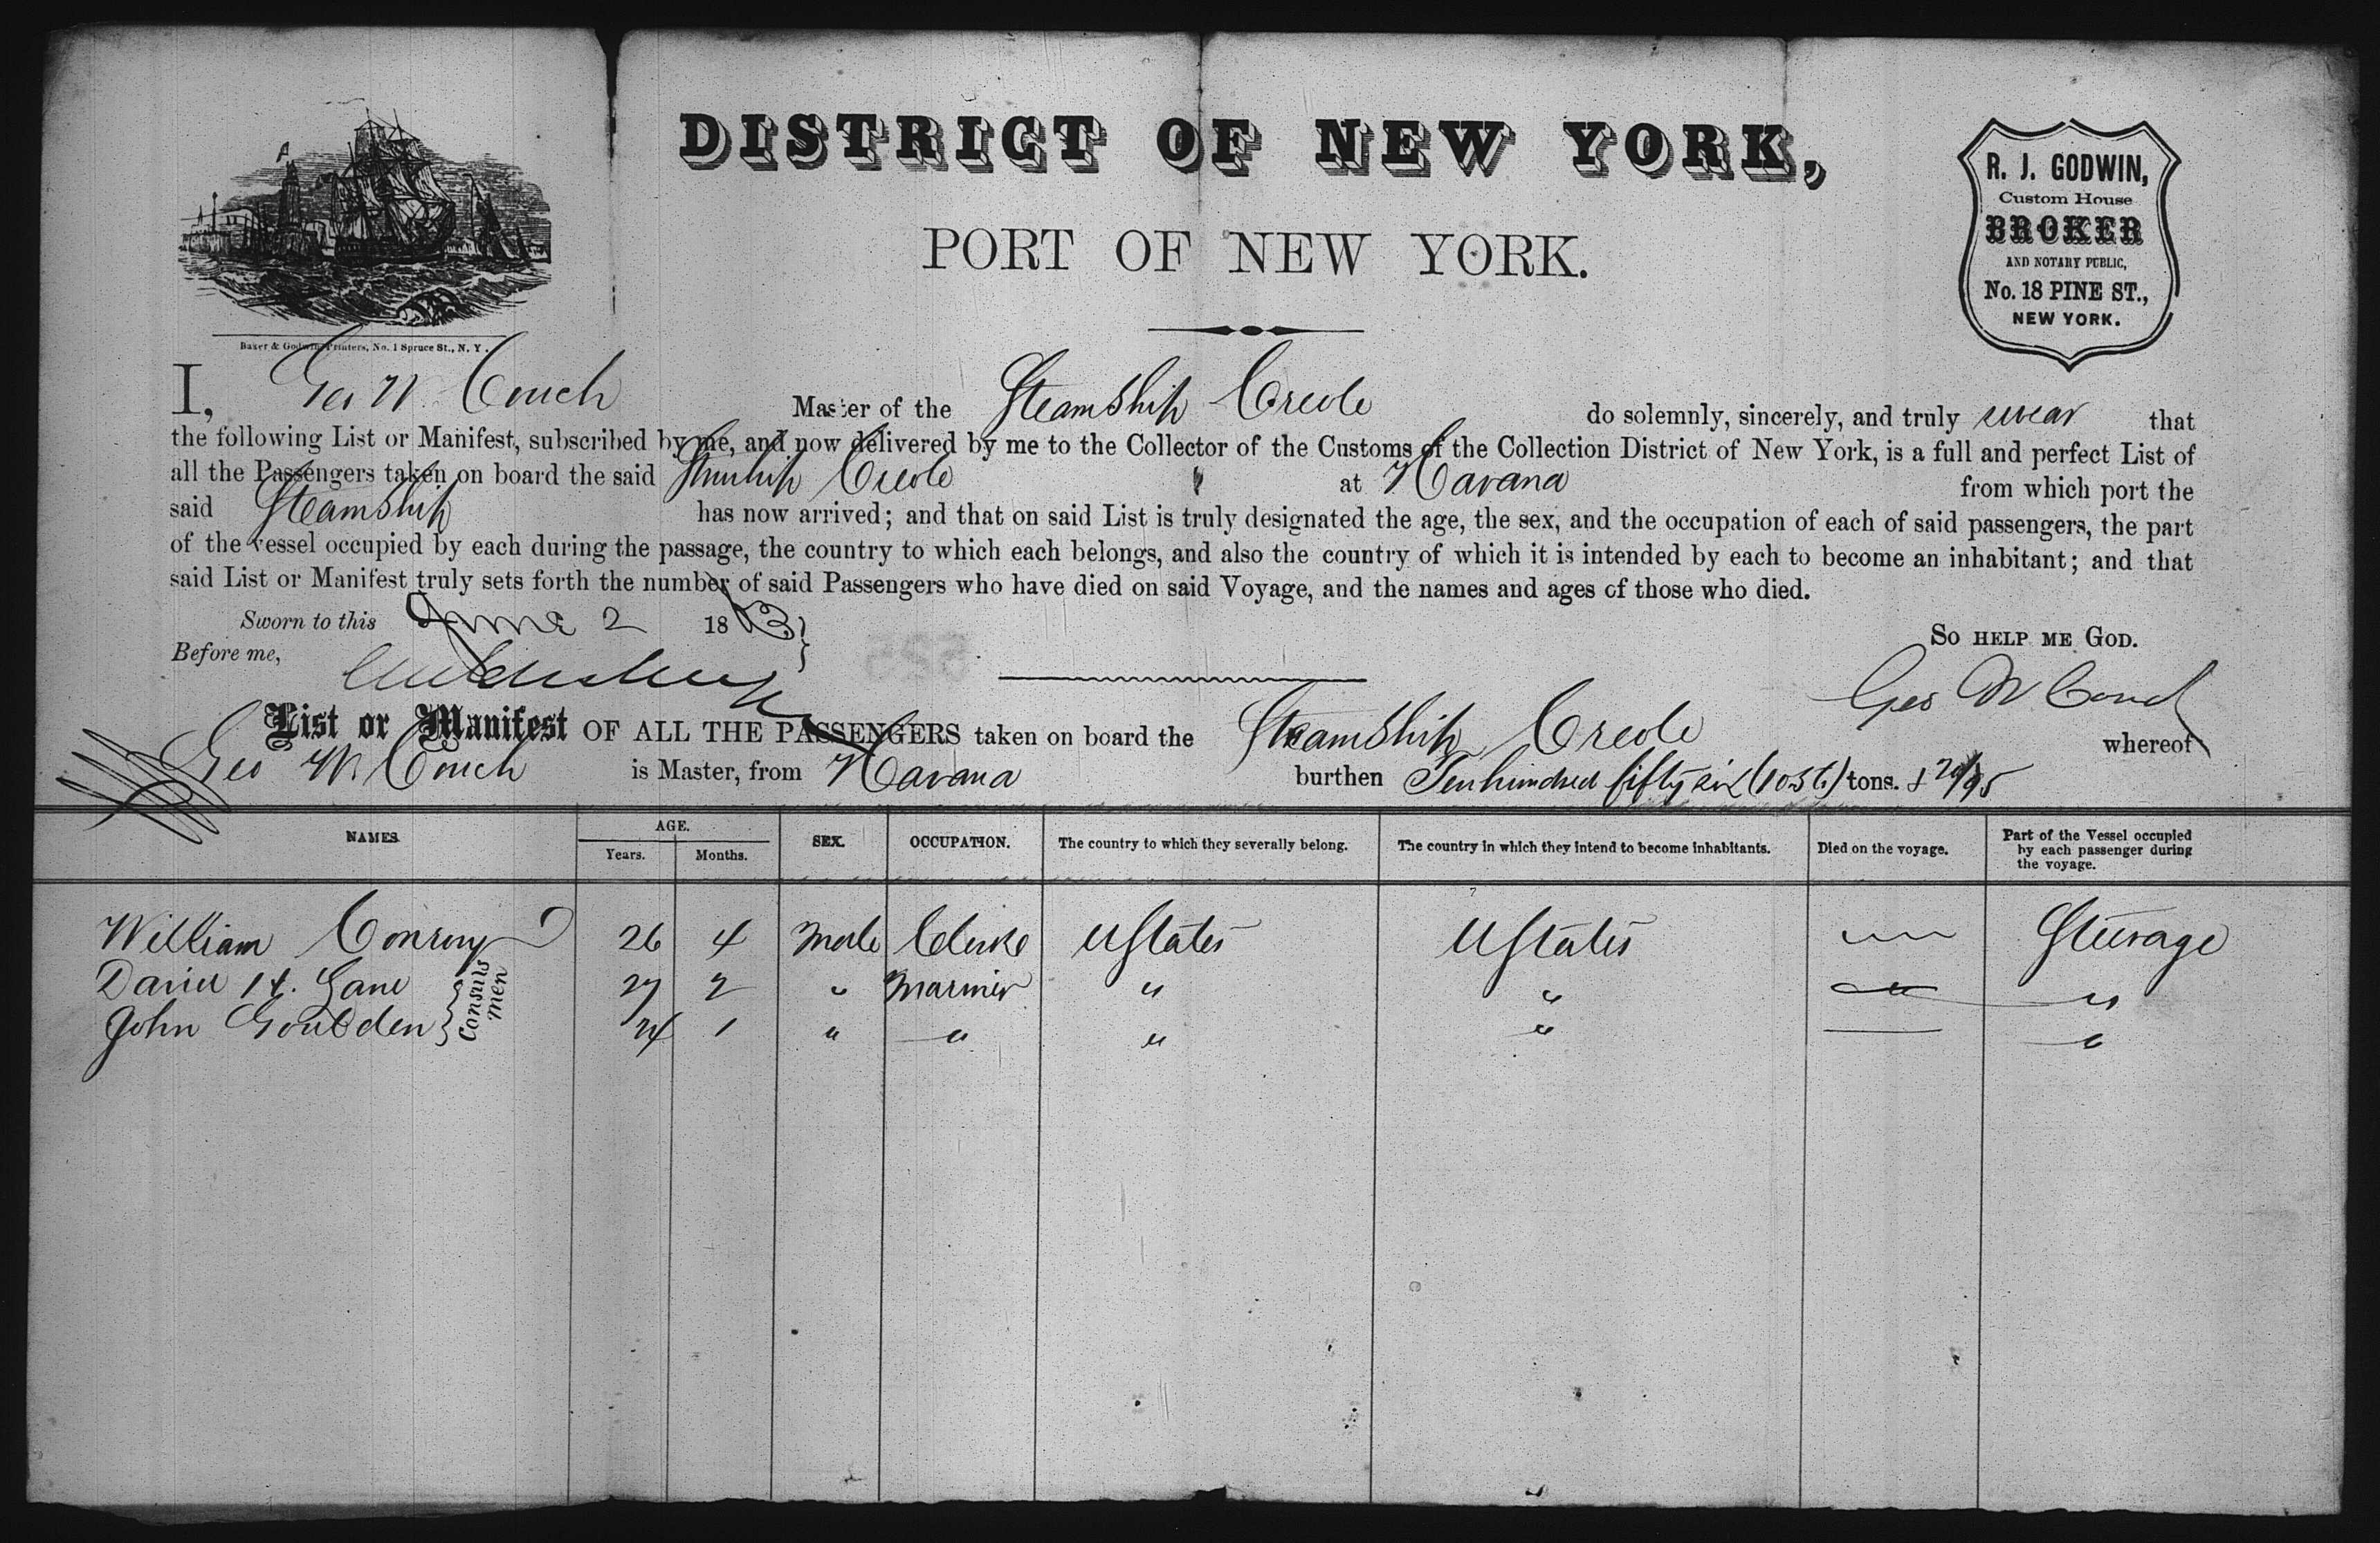 DISTRICT OF NEW YORK,
PORT OF NEW YORK.
R. J. GODWIN,
Custom House
BROKER
AND NOTARY PUBLIC,
No. 18 PINE ST.,
NEW YORK.
Baker & Godwin, Printers, No. 1 Spruce St., N. Y.
I, Geo W. Couch Master of the Steamship Creole do solemnly, sincerely, and truly swear that
the following List or Manifest, subscribed by me, and now delivered by me to the Collector of the Customs of the Collection District of New York, is a full and perfect List of
all the Passengers taken on board the said Steamship Creole at Havana from which port the
said Steamship has now arrived; and that on said List is truly designated the age, the sex, and the occupation of each of said passengers, the part
of the vessel occupied by each during the passage, the country to which each belongs, and also the country of which it is intended by each to become an inhabitant; and that
said List or Manifest truly sets forth the number of said Passengers who have died on said Voyage, and the names and ages of those who died.
Sworn to this June 2 1863
So HELP ME GOD.
Before me,
Geo W Couch
List or Manifest OF ALL THE PASSENGERS taken on board the Steamship Creole whereof
Geo W. Couch is Master, from Havana burthen Ten hundred fifty six (1056) tons. & 20/95
NAMES AGE. SEX. OCCUPATION. The country to which they severally belong. The country in which they intend to become inhabitants. Died on the voyage. Part of the Vessel occupied by each passenger during the voyage.
Years. Months.
William Conroy 26 4 Male Clerke UStates UStates Steerage
Daniel H. Gane 27 2 " Mariner " " " "
John Goulden 24 1 " " " " "
Consuls
men